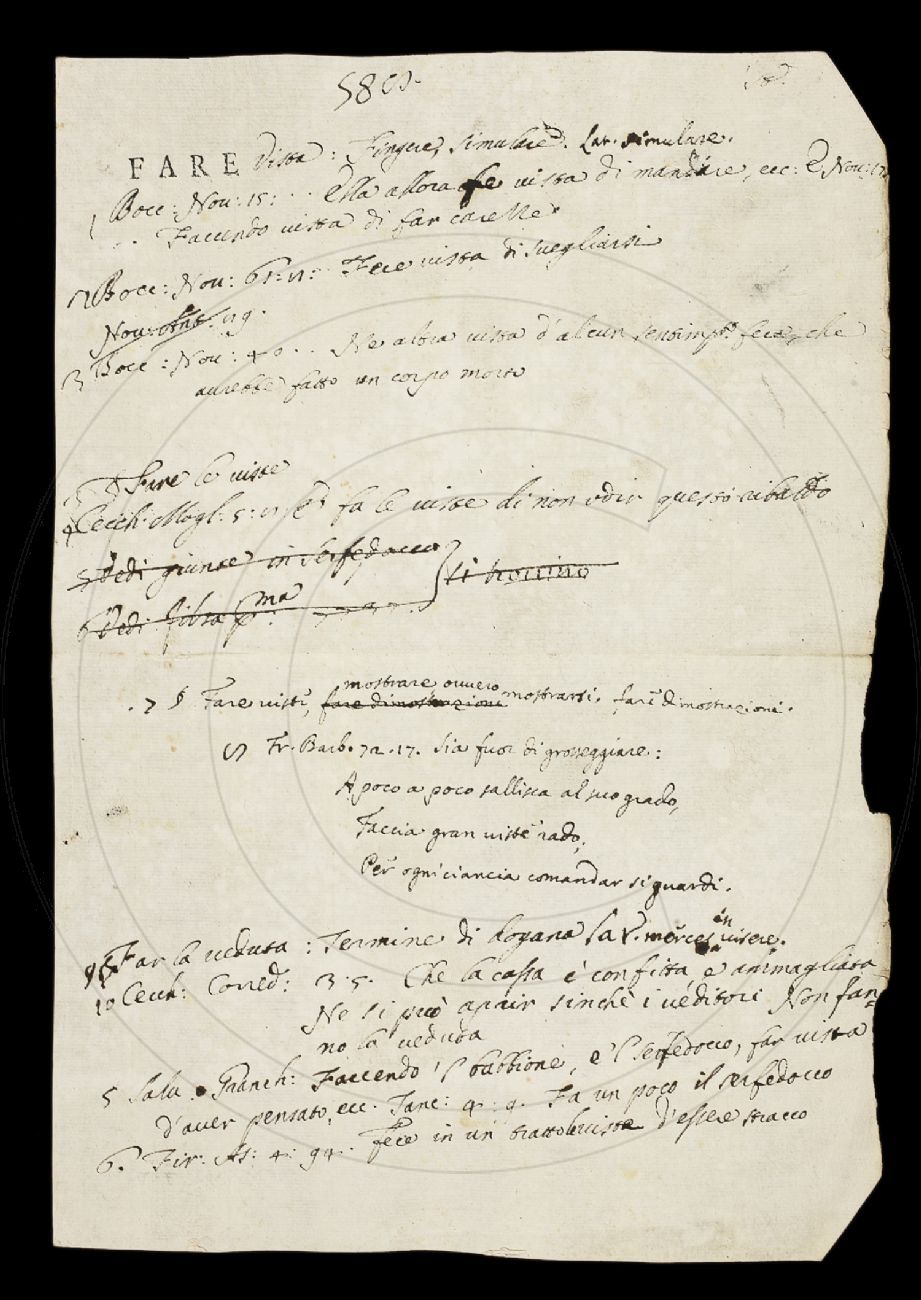 580.
FARE Vista: Fingere, simulare. Lat. simulare.
1 Bocc: Nov: 15: .. Ella allora fe vista di mandare, ecc: E Nov: 17
.. Facendo vista di far carezze.
2 Bocc: Nov: 61: 11: Fece vista di svegliarsi
Nov: ant: 29.
3 Bocc: Nov: 40 .. Ne altra vista d'alcun sentimto fece, che
avrebbe fatto un corpo morto
§ Fare le viste
4 Cecch. Mogl: 5: fa le viste di non udir questo ribaldo
5 Vedi giunte in Serfedocco
6 Vedi filza pma
si trovino
7 § Fare viste, mostrare ovvero
fare dimostrazioni mostrarsi. fare dimostrazioni.
Fr. Barb. 72. 17. Sia fuor di grosseggiare:
A poco a poco sallisca al suo grado,
Faccia gran viste rado,
Per ogni ciancia comandar si guardi.
9 § Far la veduta: Termine di dogana Lat. merces invisere.
10 Cecch: Corred: 3. 5. Che la cassa è confitta e ammagliata
Ne si può aprir sinchè i veditori Non fan=
no la veduta
5 Salv. Granch: Faccendo 'l babbione, e 'l serfedocco, far vista
d'aver pensato, ecc. Tanc: 4: 9. Fa un poco il serfedocco
6. Fir: As: 4: 94: Fece in un tratto le viste d'essere stracco